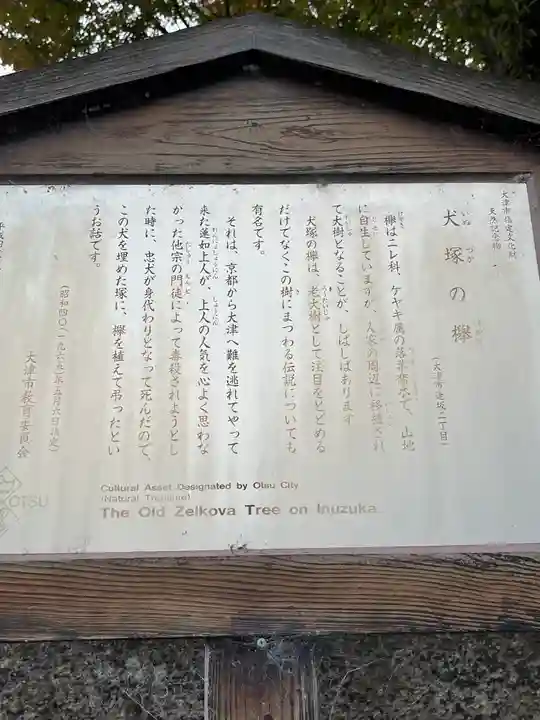 大津市指定文化財
天然記念物
犬塚の欅
いぬづかのけやき
(大津市逢坂二丁目)
欅はニレ科、ケヤキ属の落葉喬木で、山地
に自生していますが、人家の周辺に移植され
て大樹となることが、しばしばあります
犬塚の欅は、老大樹として注目をとどめる
だけでなくこの樹にまつわる伝説についても
有名です。
それは、京都から大津へ難を逃れてやって
来た蓮如上人が、上人の人気を心よく思わな
かった他宗の門徒によって毒殺されようとし
た時に、忠犬が身代わりとなって死んだので、
この犬を埋めた塚に、欅を植えて弔ったとい
うお話です。
(昭和四〇(一九六五)年五月六日決定)
大津市教育委員会
Cultural Asset Designated by Otsu City
(Natural Treasure)
The Old Zelkova Tree on Inuzuka
OTSU